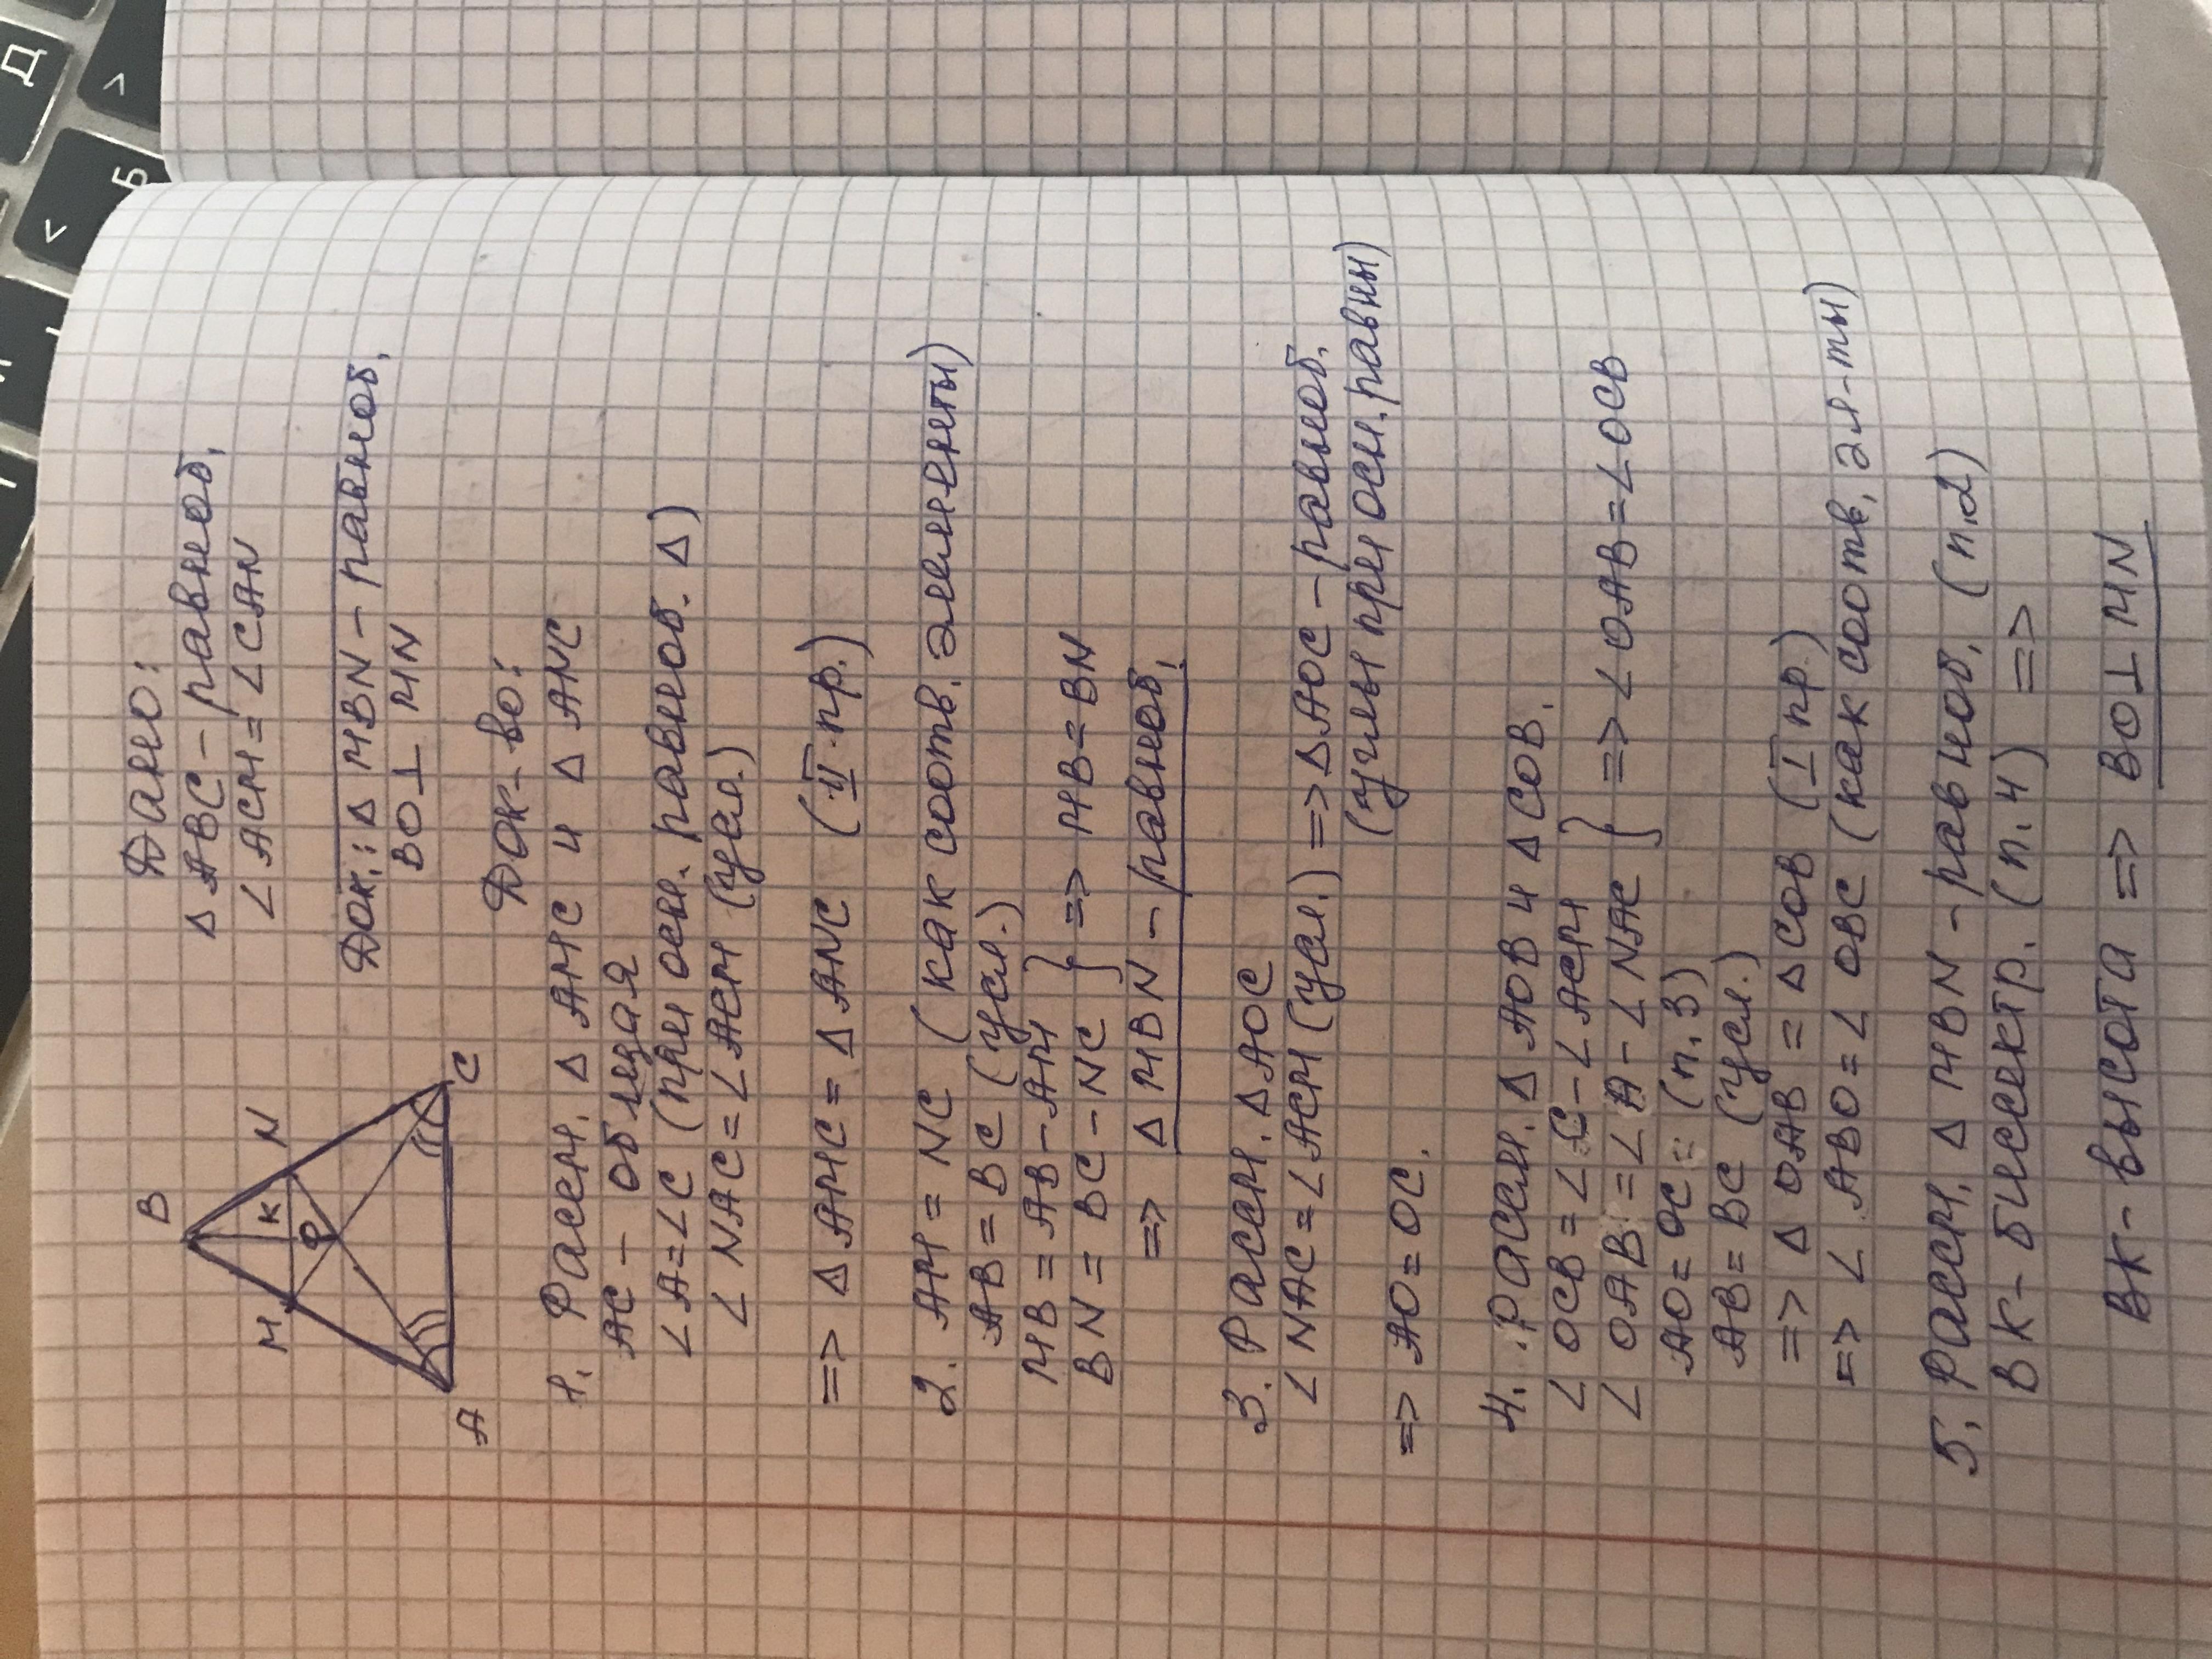 Дано:
Δ ABC - равноб.
∠ ACM = ∠ CAN
Док.: Δ MBN - равноб.
BO ⊥ MN
B
M
N
K
O
A
C
Док-во:
1. Рассм. Δ AMC и Δ ANC
AC - общая
∠A = ∠C (при осн. равноб. Δ)
∠ NAC = ∠ ACM (усл.)
=> Δ AMC = Δ ANC (II пр.)
2. AM = NC (как соотв. элементы)
AB = BC (усл.)
MB = AB - AM
BN = BC - NC } => MB = BN
=> Δ MBN - равноб.
3. Рассм. Δ AOC
∠ NAC = ∠ ACM (усл.) => Δ AOC - равноб.
(углы при осн. равны)
=> AO = OC.
4. Рассм. Δ AOB и Δ COB.
∠ OCB = ∠ C - ∠ ACM
∠ OAB = ∠ A - ∠ NAC } => ∠ OAB = ∠ OCB
AO = OC (п. 3)
AB = BC (усл.)
=> Δ OAB = Δ COB (I пр.)
=> ∠ ABO = ∠ OBC (как соотв. эл-ты)
5. Рассм. Δ MBN - равноб. (п.2)
BK - биссектр. (п. 4) =>
BK - высота => BO ⊥ MN
Д
>
Б
<